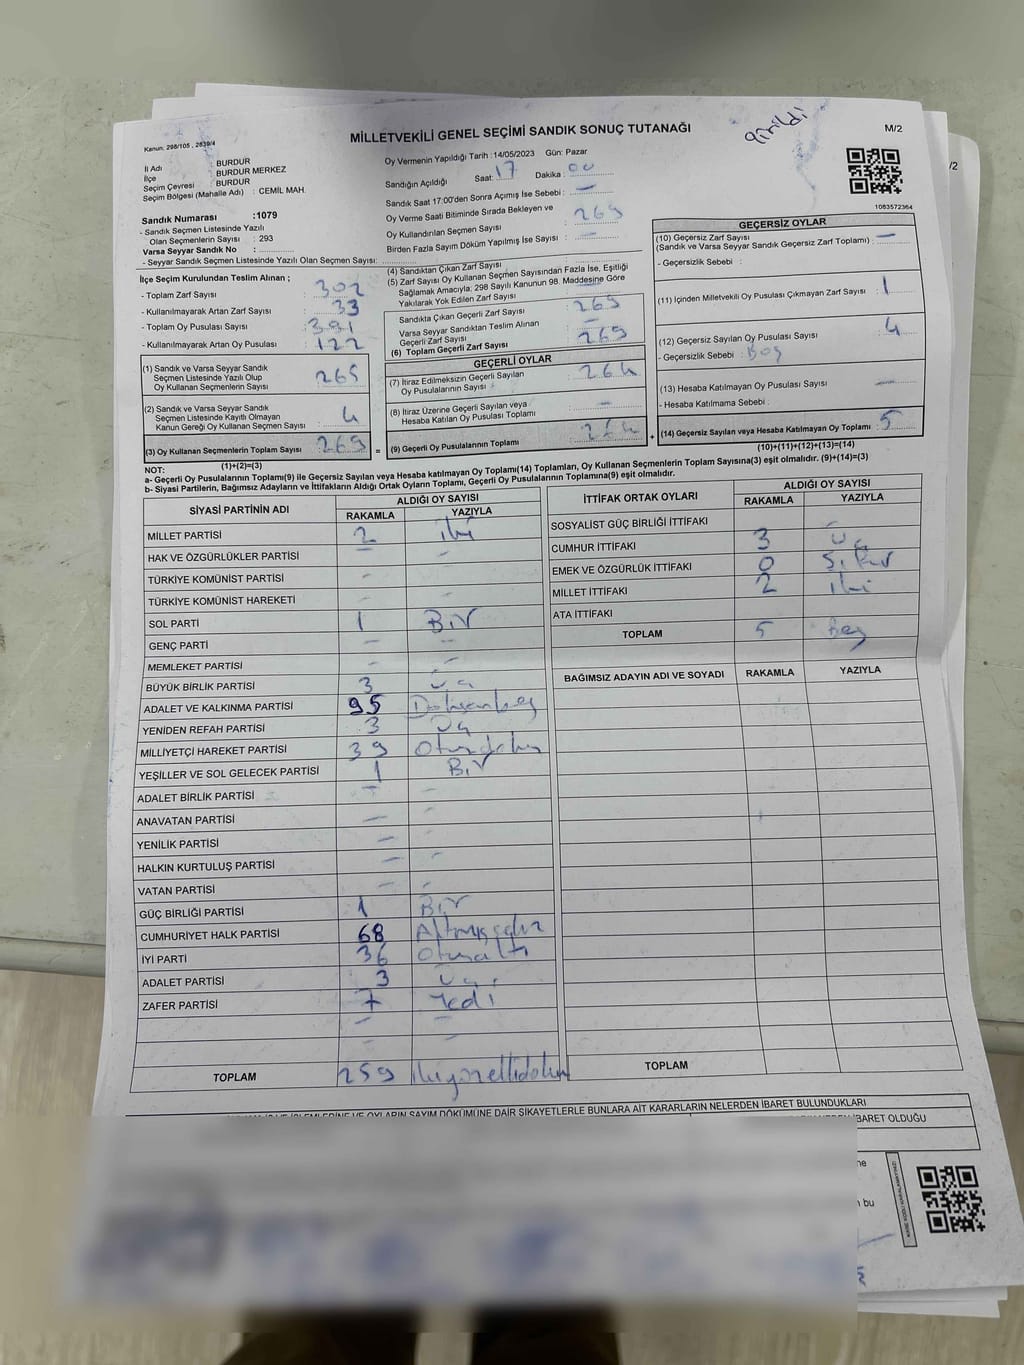 girildi
MİLLETVEKİLİ GENEL SEÇİMİ SANDIK SONUÇ TUTANAĞI
M/2
Kanun: 298/105 , 2839/4
İl Adı : BURDUR
İlçe : BURDUR MERKEZ
Seçim Çevresi : BURDUR
Seçim Bölgesi (Mahalle Adı) : CEMİL MAH.
Sandık Numarası :1079
- Sandık Seçmen Listesinde Yazılı
Olan Seçmenlerin Sayısı : 293
Varsa Seyyar Sandık No :
- Seyyar Sandık Seçmen Listesinde Yazılı Olan Seçmen Sayısı:
Oy Vermenin Yapıldığı Tarih :14/05/2023 Gün: Pazar
Sandığın Açıldığı Saat: 17 Dakika : 00
Sandık Saat 17:00'den Sonra Açımış İse Sebebi : —
Oy Verme Saati Bitiminde Sırada Bekleyen ve
Oy Kullandırılan Seçmen Sayısı : 269
Birden Fazla Sayım Döküm Yapılmış İse Sayısı : —
1083572364
İlçe Seçim Kurulundan Teslim Alınan ;
- Toplam Zarf Sayısı : 302
- Kullanılmayarak Artan Zarf Sayısı : 33
- Toplam Oy Pusulası Sayısı : 391
- Kullanılmayarak Artan Oy Pusulası : 122
(1) Sandık ve Varsa Seyyar Sandık
Seçmen Listesinde Yazılı Olup
Oy Kullanan Seçmenlerin Sayısı : 265
(2) Sandık ve Varsa Seyyar Sandık
Seçmen Listesinde Kayıtlı Olmayan
Kanun Gereği Oy Kullanan Seçmen Sayısı : 4
(3) Oy Kullanan Seçmenlerin Toplam Sayısı : 269
(1)+(2)=(3)
(4) Sandıktan Çıkan Zarf Sayısı
(5) Zarf Sayısı Oy Kullanan Seçmen Sayısından Fazla İse, Eşitliği
Sağlamak Amacıyla; 298 Sayılı Kanunun 98. Maddesine Göre
Yakılarak Yok Edilen Zarf Sayısı
Sandıkta Çıkan Geçerli Zarf Sayısı : 269
Varsa Seyyar Sandıktan Teslim Alınan
Geçerli Zarf Sayısı : —
(6) Toplam Geçerli Zarf Sayısı : 269
GEÇERLİ OYLAR
(7) İtiraz Edilmeksizin Geçerli Sayılan
Oy Pusulalarının Sayısı : 264
(8) İtiraz Üzerine Geçerli Sayılan veya
Hesaba Katılan Oy Pusulası Toplamı : —
= (9) Geçerli Oy Pusulalarının Toplamı : 264
GEÇERSİZ OYLAR
(10) Geçersiz Zarf Sayısı : —
(Sandık ve Varsa Seyyar Sandık Geçersiz Zarf Toplamı)
- Geçersizlik Sebebi :
(11) İçinden Milletvekili Oy Pusulası Çıkmayan Zarf Sayısı : 1
(12) Geçersiz Sayılan Oy Pusulası Sayısı : 4
- Geçersizlik Sebebi : Boş
(13) Hesaba Katılmayan Oy Pusulası Sayısı : —
- Hesaba Katılmama Sebebi :
+ (14) Geçersiz Sayılan veya Hesaba Katılmayan Oy Toplamı : 5
(10)+(11)+(12)+(13)=(14)
NOT:
a- Geçerli Oy Pusulalarının Toplamı(9) ile Geçersiz Sayılan veya Hesaba katılmayan Oy Toplamı(14) Toplamları, Oy Kullanan Seçmenlerin Toplam Sayısına(3) eşit olmalıdır. (9)+(14)=(3)
b- Siyasi Partilerin, Bağımsız Adayların ve İttifakların Aldığı Oyların Toplamı, Geçerli Oy Pusulalarının Toplamına(9) eşit olmalıdır.
SİYASİ PARTİNİN ADI ALDIĞI OY SAYISI
RAKAMLA YAZIYLA
MİLLET PARTİSİ 2 iki
HAK VE ÖZGÜRLÜKLER PARTİSİ — —
TÜRKİYE KOMÜNİST PARTİSİ — —
TÜRKİYE KOMÜNİST HAREKETİ — —
SOL PARTİ 1 Bir
GENÇ PARTİ — —
MEMLEKET PARTİSİ — —
BÜYÜK BİRLİK PARTİSİ 3 üç
ADALET VE KALKINMA PARTİSİ 95 Doksanbeş
YENİDEN REFAH PARTİSİ 3 üç
MİLLİYETÇİ HAREKET PARTİSİ 39 Otuzdokuz
YEŞİLLER VE SOL GELECEK PARTİSİ 1 Bir
ADALET BİRLİK PARTİSİ — —
ANAVATAN PARTİSİ — —
YENİLİK PARTİSİ — —
HALKIN KURTULUŞ PARTİSİ — —
VATAN PARTİSİ — —
GÜÇ BİRLİĞİ PARTİSİ 1 Bir
CUMHURİYET HALK PARTİSİ 68 Altmışsekiz
İYİ PARTİ 36 Otuzaltı
ADALET PARTİSİ 3 üç
ZAFER PARTİSİ 7 Yedi
TOPLAM 259 ikiyüzellidokuz
İTTİFAK ORTAK OYLARI ALDIĞI OY SAYISI
RAKAMLA YAZIYLA
SOSYALİST GÜÇ BİRLİĞİ İTTİFAKI
CUMHUR İTTİFAKI 3 üç
EMEK VE ÖZGÜRLÜK İTTİFAKI 0 Sıfır
MİLLET İTTİFAKI 2 iki
ATA İTTİFAKI
TOPLAM 5 Beş
BAĞIMSIZ ADAYIN ADI VE SOYADI RAKAMLA YAZIYLA
TOPLAM
OYLARIN SAYIM DÖKÜMÜNE DAİR ŞİKAYETLERLE BUNLARA AİT KARARLARIN NELERDEN İBARET BULUNDUKLARI
İBARET OLDUĞU
bu